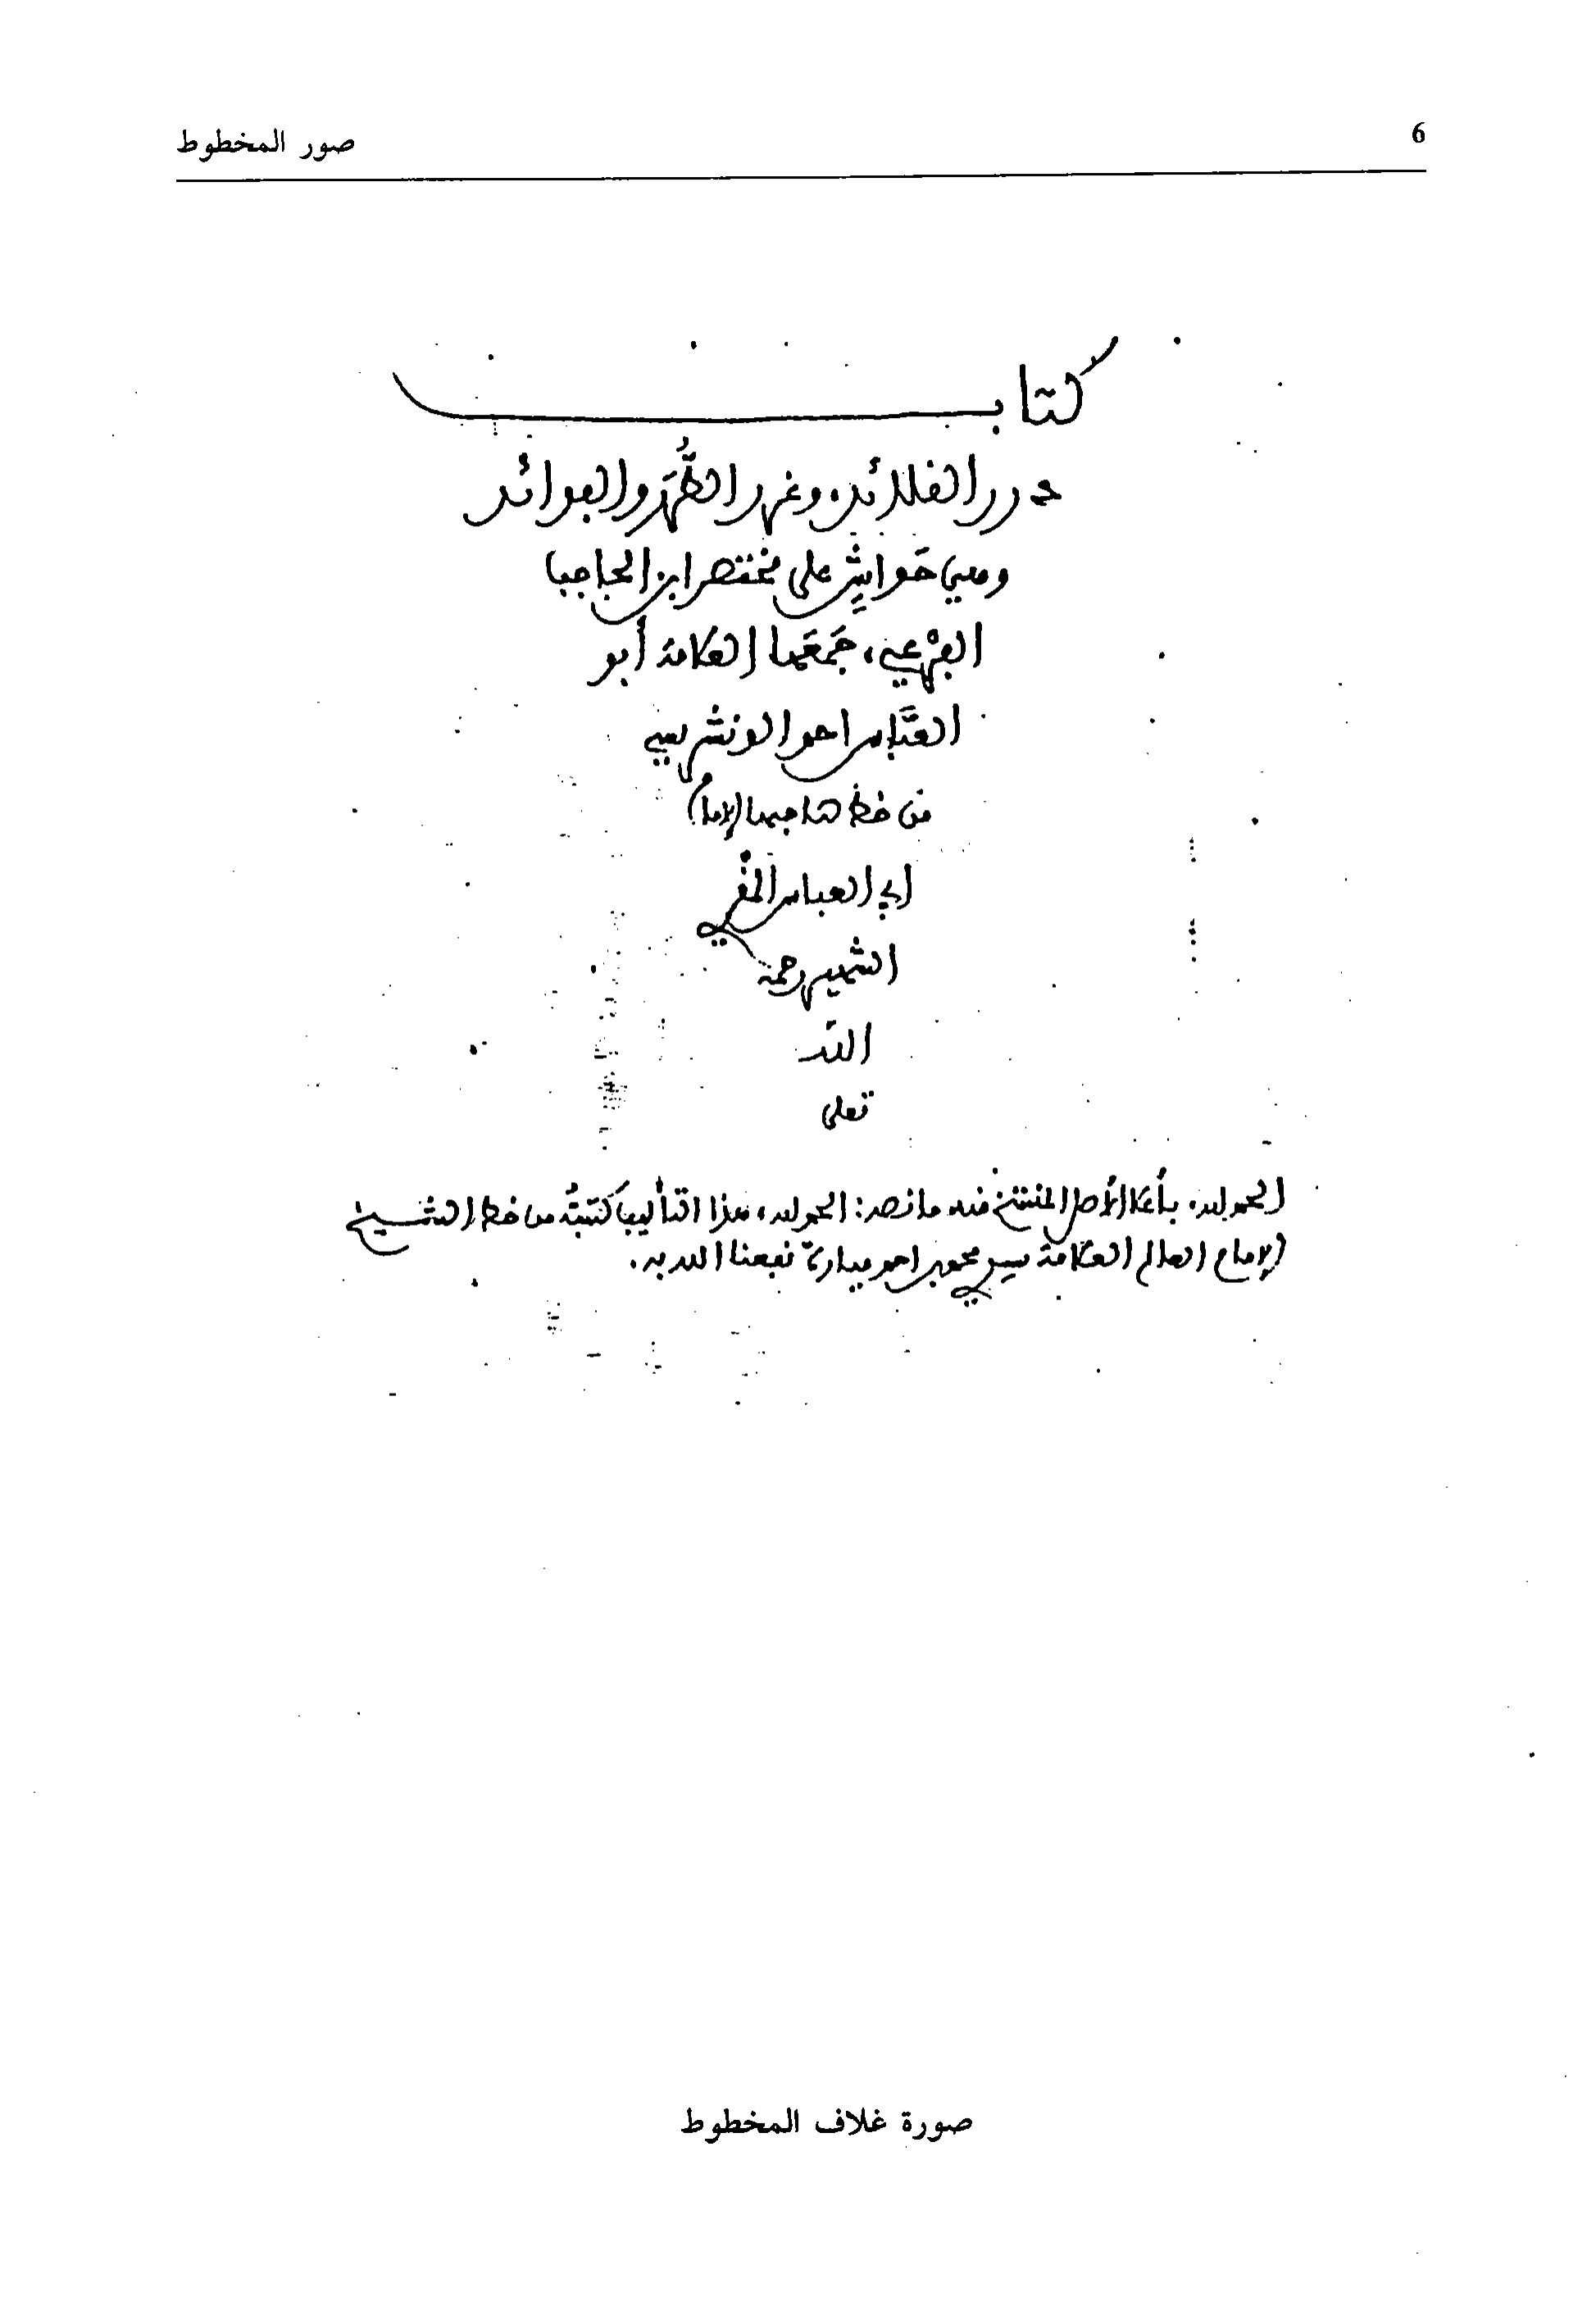 6
صور المخطوط
كتاب
درر القلائد، وغرر الطُّرَر والفوائد
وهي حَواشٍ على مختصر ابن الحاجب
الفرْعي، جَمَعَها العلامة أبو
العبَّاس احمد الونشريسي
من خط صاحبها الإمام
أبي العباس المقَّري
الشهير رحمه
الله
تعلى
الحمد لله. بأعلا الأصل المنتسخ منه ما نصه: الحمد لله، هذا التأليف كتبتُه من خط الشيخ
الإمام العالم العلامة سيدي محمد بن احمد ميارة نفعنا الله به.
صورة غلاف المخطوط